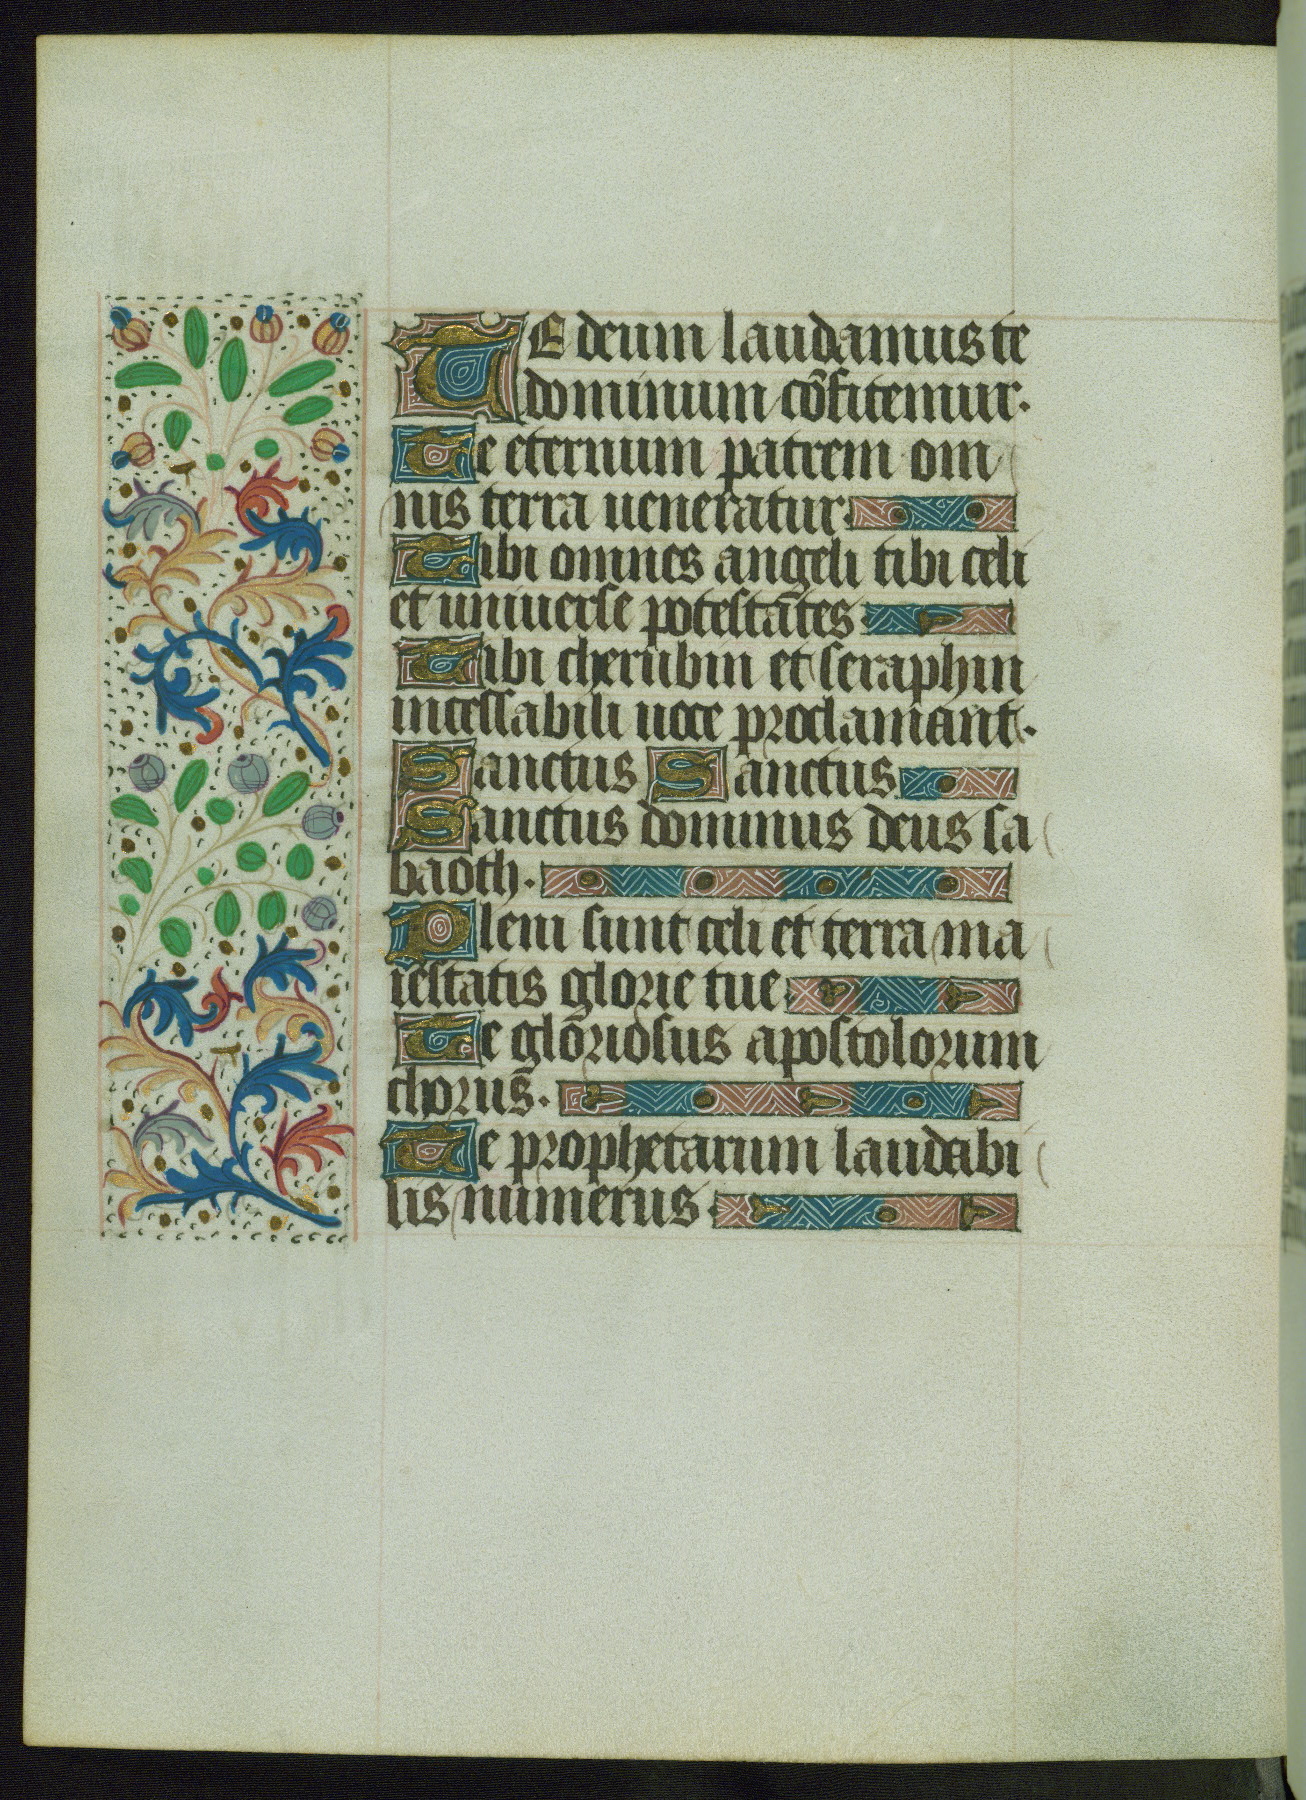 TE deum laudamus te
dominum cōfitemur.
Te eternum patrem om
nis terra ueneratur.
Tibi omnes angeli tibi celi
et uniuerse potestātes
Tibi cherubin et seraphin
incessabili uoce proclamant.
Sanctus Sanctus
Sanctus dominus deus sa
baoth.
Pleni sunt celi et terra ma
iestatis glorie tue
Te glōriosus apostolorum
chorus̄.
Te prophetarum laudabi
lis numerus